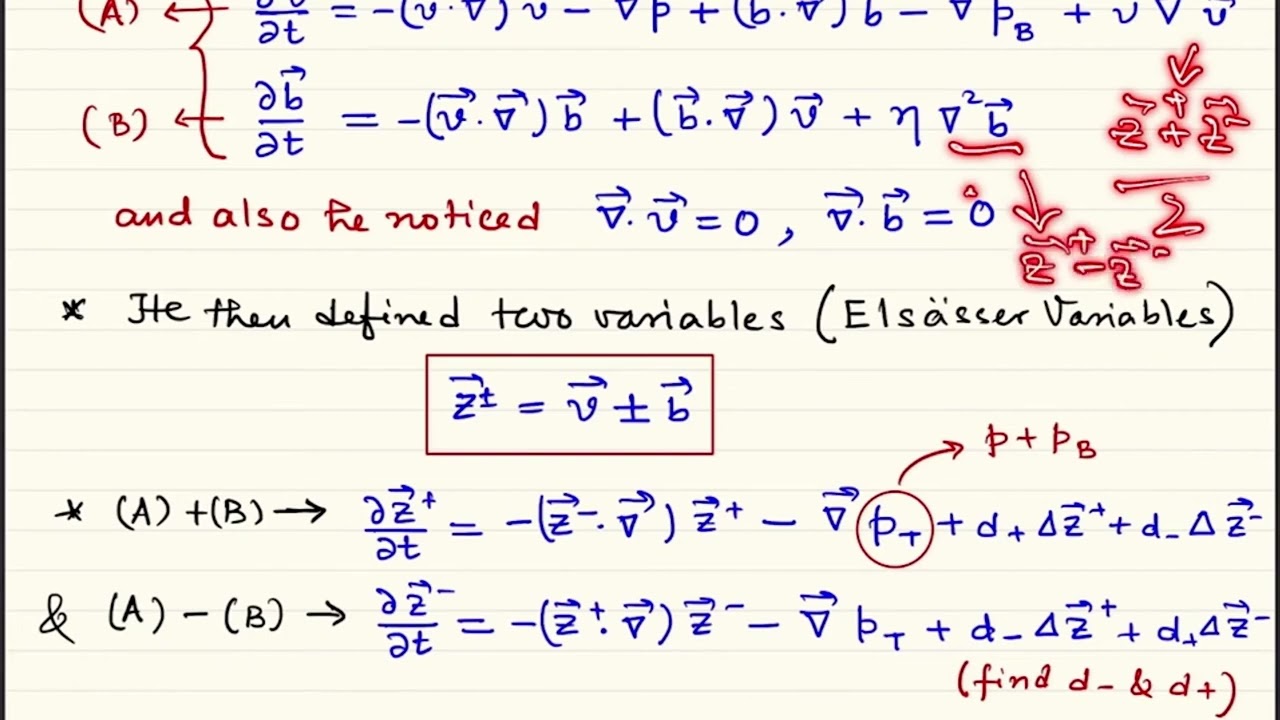 (A) ← ∂v⃗/∂t = -(v⃗·∇⃗)v⃗ - ∇⃗p + (b⃗·∇⃗)b⃗ - ∇⃗p_B + ν∇²v⃗
(B) ← ∂b⃗/∂t = -(v⃗·∇⃗)b⃗ + (b⃗·∇⃗)v⃗ + η∇²b⃗
(z⃗⁺ + z⃗⁻)/2
and also he noticed ∇⃗·v⃗ = 0, ∇⃗·b⃗ = 0
z⃗⁺ - z⃗⁻
* He then defined two variables (Elsässer Variables)
z⃗± = v⃗ ± b⃗
p + p_B
* (A)+(B) → ∂z⃗⁺/∂t = -(z⃗⁻·∇⃗)z⃗⁺ - ∇⃗p_T + d₊Δz⃗⁺ + d₋Δz⃗⁻
& (A)-(B) → ∂z⃗⁻/∂t = -(z⃗⁺·∇⃗)z⃗⁻ - ∇⃗p_T + d₋Δz⃗⁺ + d₊Δz⃗⁻
(find d- & d+)